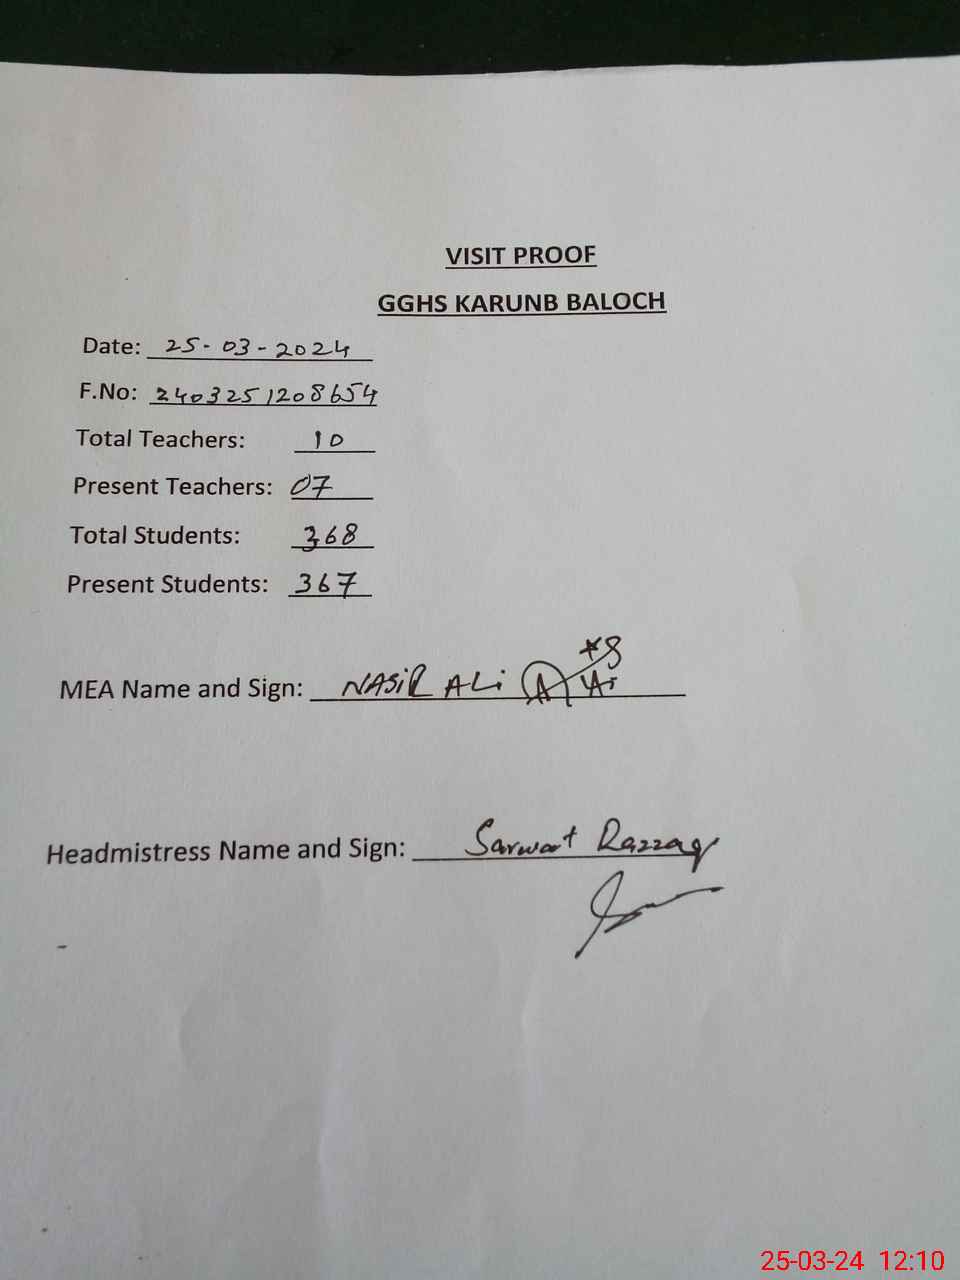 VISIT PROOF
GGHS KARUNB BALOCH
Date: 25-03-2024
F.No: 2403251208654
Total Teachers: 10
Present Teachers: 07
Total Students: 368
Present Students: 367
MEA Name and Sign: NASIR ALi
Headmistress Name and Sign: Sarwat Razzaq
25-03-24 12:10